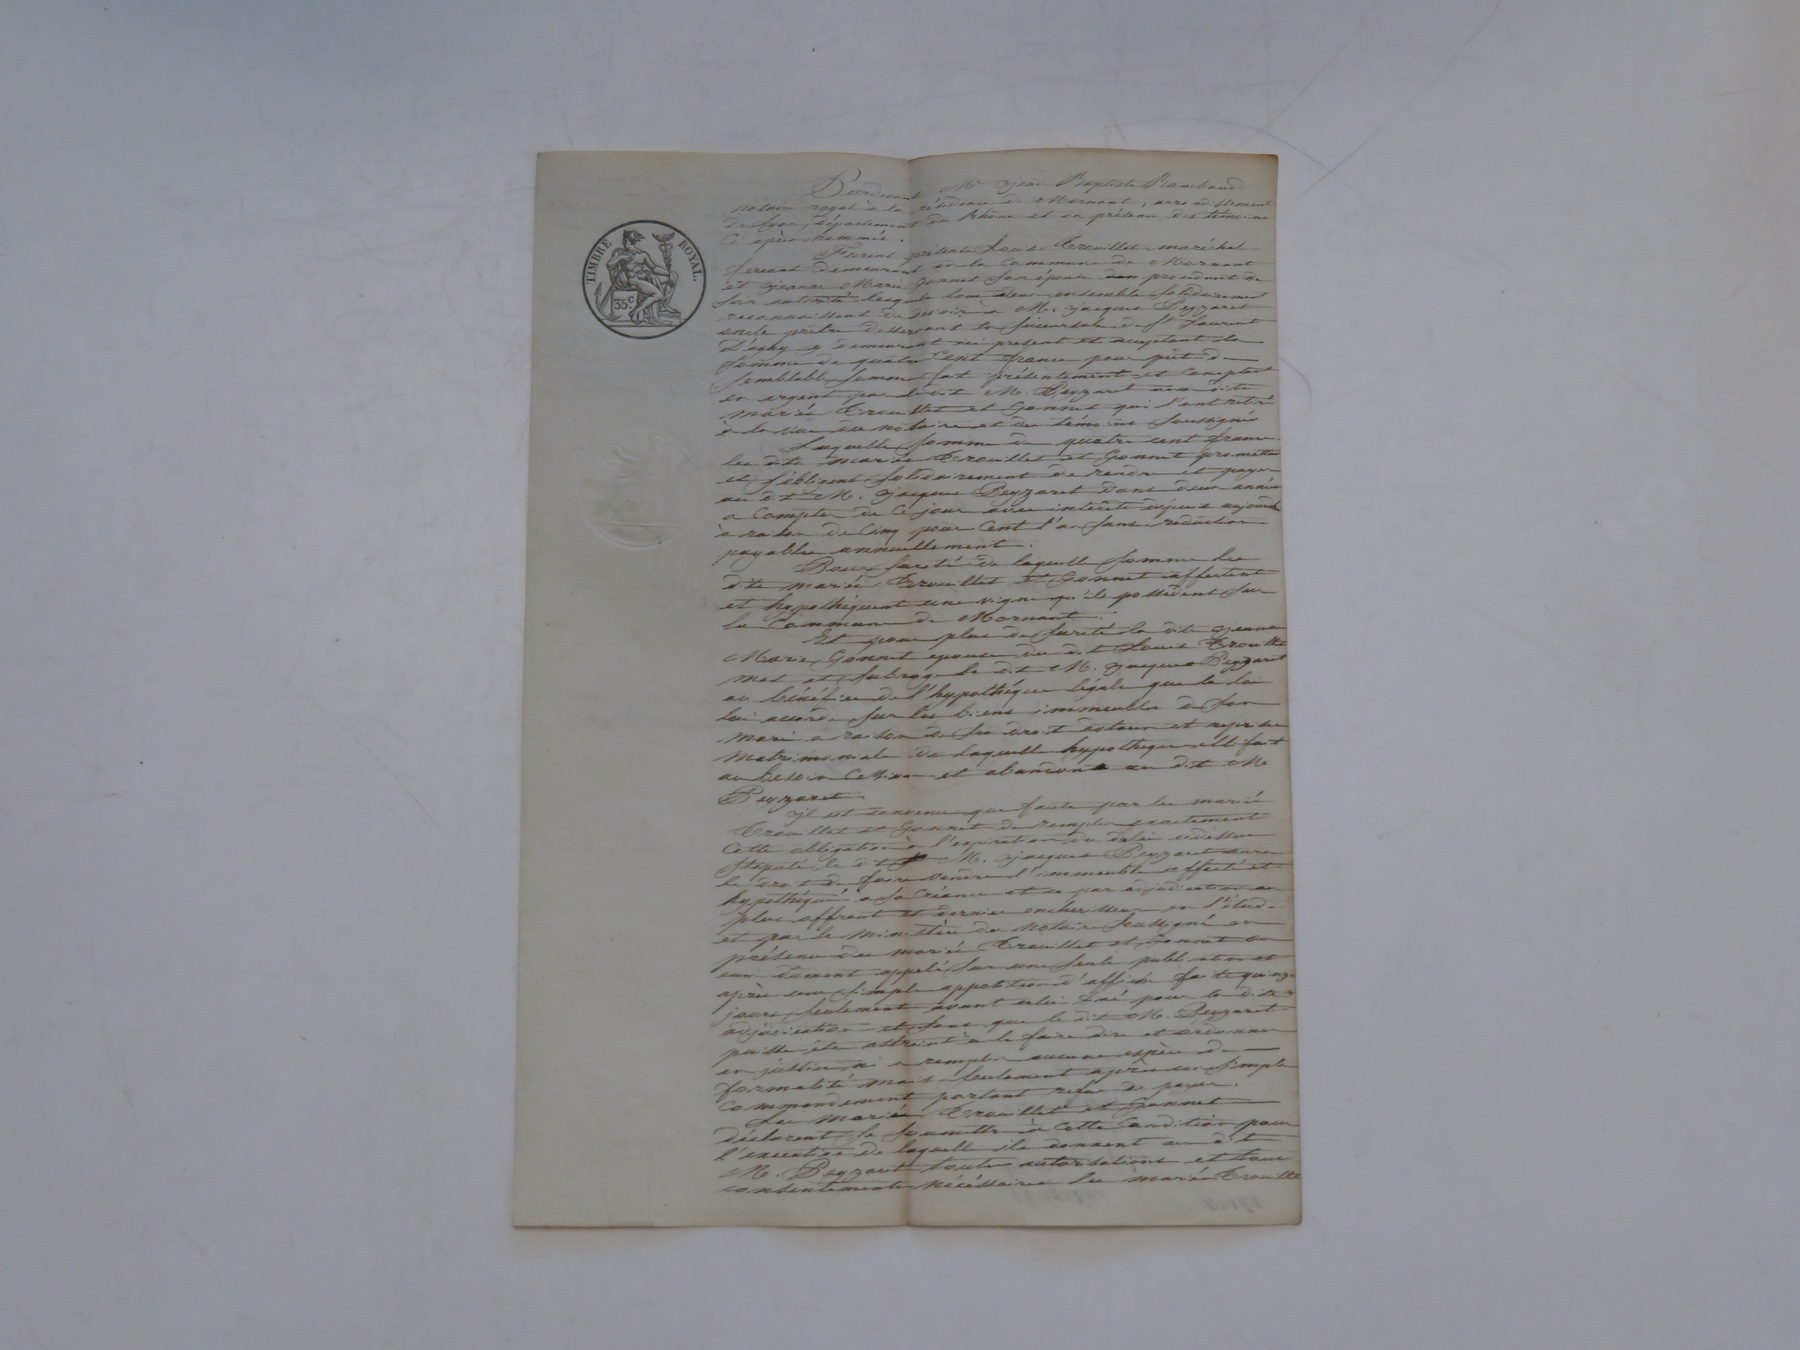 TIMBRE ROYAL.
35c
Pardevant Me Jean Baptiste Rambaud
notaire royal à la résidence de Mornant, arrondissement
de Lyon, département du Rhône et en présence des témoins
ci après nommés.
Furent présents Louis Trouillet maréchal
ferrant demeurant en la Commune de Mornant
et Jeanne Marie Gonnet son épouse procédant de
son autorité lesquels tous deux ensemble solidairement
reconnaissent devoir à M. Jacques Peyzaret
prêtre desservant la succursale de St Laurent
D'agny y demeurant ici présent et acceptant la
somme de quatre cent francs pour prêt de
semblable somme fait présentement et comptant
en argent par le dit M. Peyzaret aux dits
mariés Trouillet et Gonnet qui l'ont retiré
à la vue du notaire et des témoins soussignés
Laquelle somme de quatre cent francs
les dits mariés Trouillet et Gonnet promettent
et s'obligent solidairement de rendre et payer
au dit M. Jacques Peyzaret dans deux années
a compter de ce jour avec intérêts depuis aujourd'hui
à raison de cinq pour cent l'an sans réduction
payables annuellement.
Pour sureté de laquelle somme les
dits mariés Trouillet et Gonnet affectent
et hypothéquent une vigne qu'ils possèdent sur
la Commune de Mornant.
Et pour plus de sureté la dite Jeanne
Marie Gonnet épouse du dit Louis Trouillet
met et subroge le dit M. Jacques Peyzaret
au bénéfice de l'hypothéque légale que la loi
lui accorde sur les biens immeubles de son
mari a raison de ses droits et reprises
matrimoniales de laquelle hypothéque elle fait
au besoin cession et abandon au dit M.
Peyzaret.
Il est convenu que faute par les mariés
Trouillet et Gonnet de remplir exactement
cette obligation à l'expiration du délai cidessus
stipulé le dit M. Jacques Peyzaret aura
le droit de faire vendre l'immeuble affecté et
hypothéqué a sa créance et ce par adjudication au
plus offrant et dernier enchérisseur en l'étude
et par le ministère du notaire soussigné en
présence des mariés Trouillet et Gonnet ou
eux dûment appelés sur une seule publication et
après une simple apposition d'affiche faite quinze
jours seulement avant celui fixé pour la dite
adjudication et sans que le dit M. Peyzaret
puisse être astreint à le faire dire et ordonner
en justice ni a remplir aucune espèce de
formalité mais seulement après un simple
commandement portant refus de payer.
Les mariés Trouillet et Gonnet
déclarent se soumettre à cette condition pour
l'exécution de laquelle ils donnent au dit
M. Peyzaret toutes autorisations et tous
consentements nécessaires les mariés Trouillet